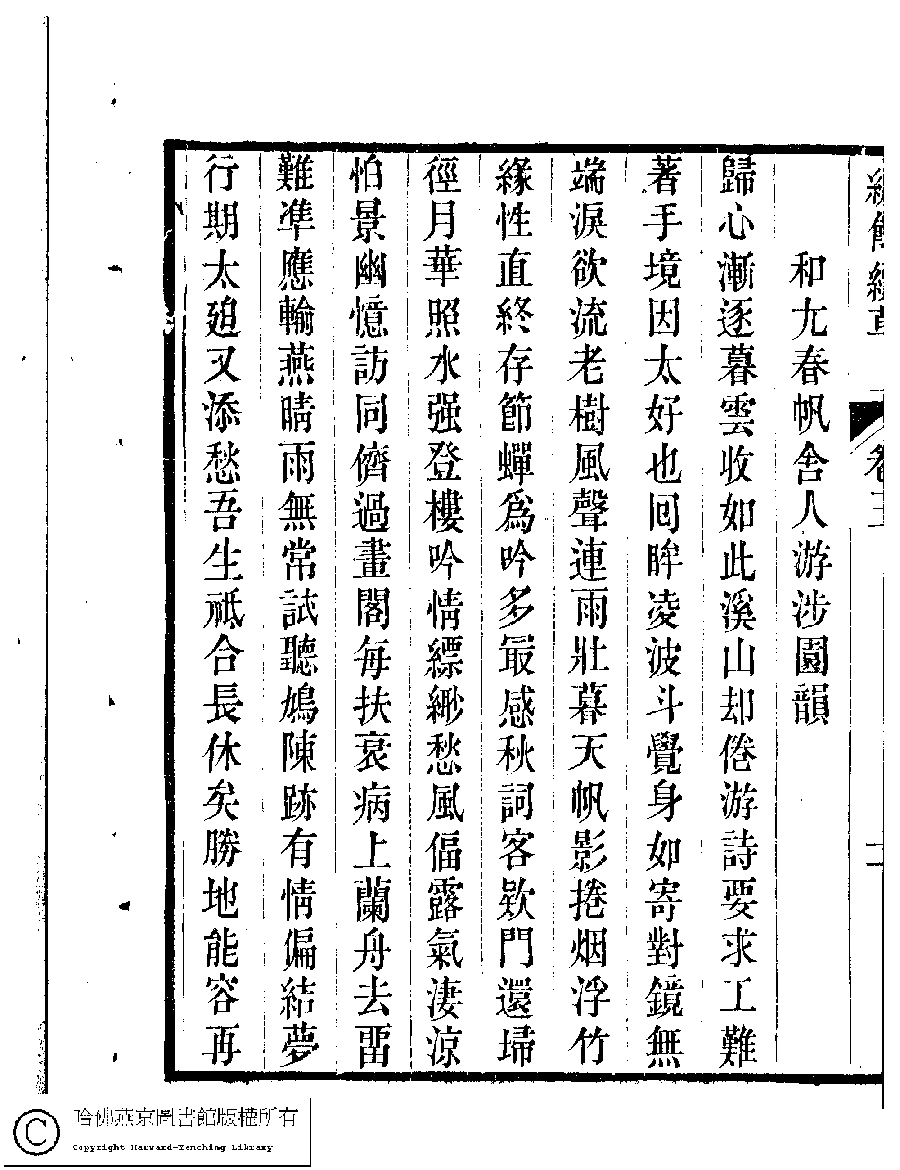 卷三
和尤春帆舍人游涉園韻
歸心漸逐暮雲收如此溪山却倦游詩要求工難
著手境因太好也囘眸凌波斗覺身如寄對鏡無
端淚欲流老樹風聲連雨壯暮天帆影捲烟浮竹
緣性直終存節蟬爲吟多最感秋詞客欵門還埽
徑月華照水强登樓吟情縹緲愁風偪露氣淒涼
怕景幽憶訪同儕過畫閣每扶衰病上蘭舟去畱
難準應輸燕晴雨無常試聽鳩陳跡有情偏結夢
行期太廹又添愁吾生祗合長休矣勝地能容再
哈佛燕京圖書館版權所有
Copyright Harvard-Yenching Library